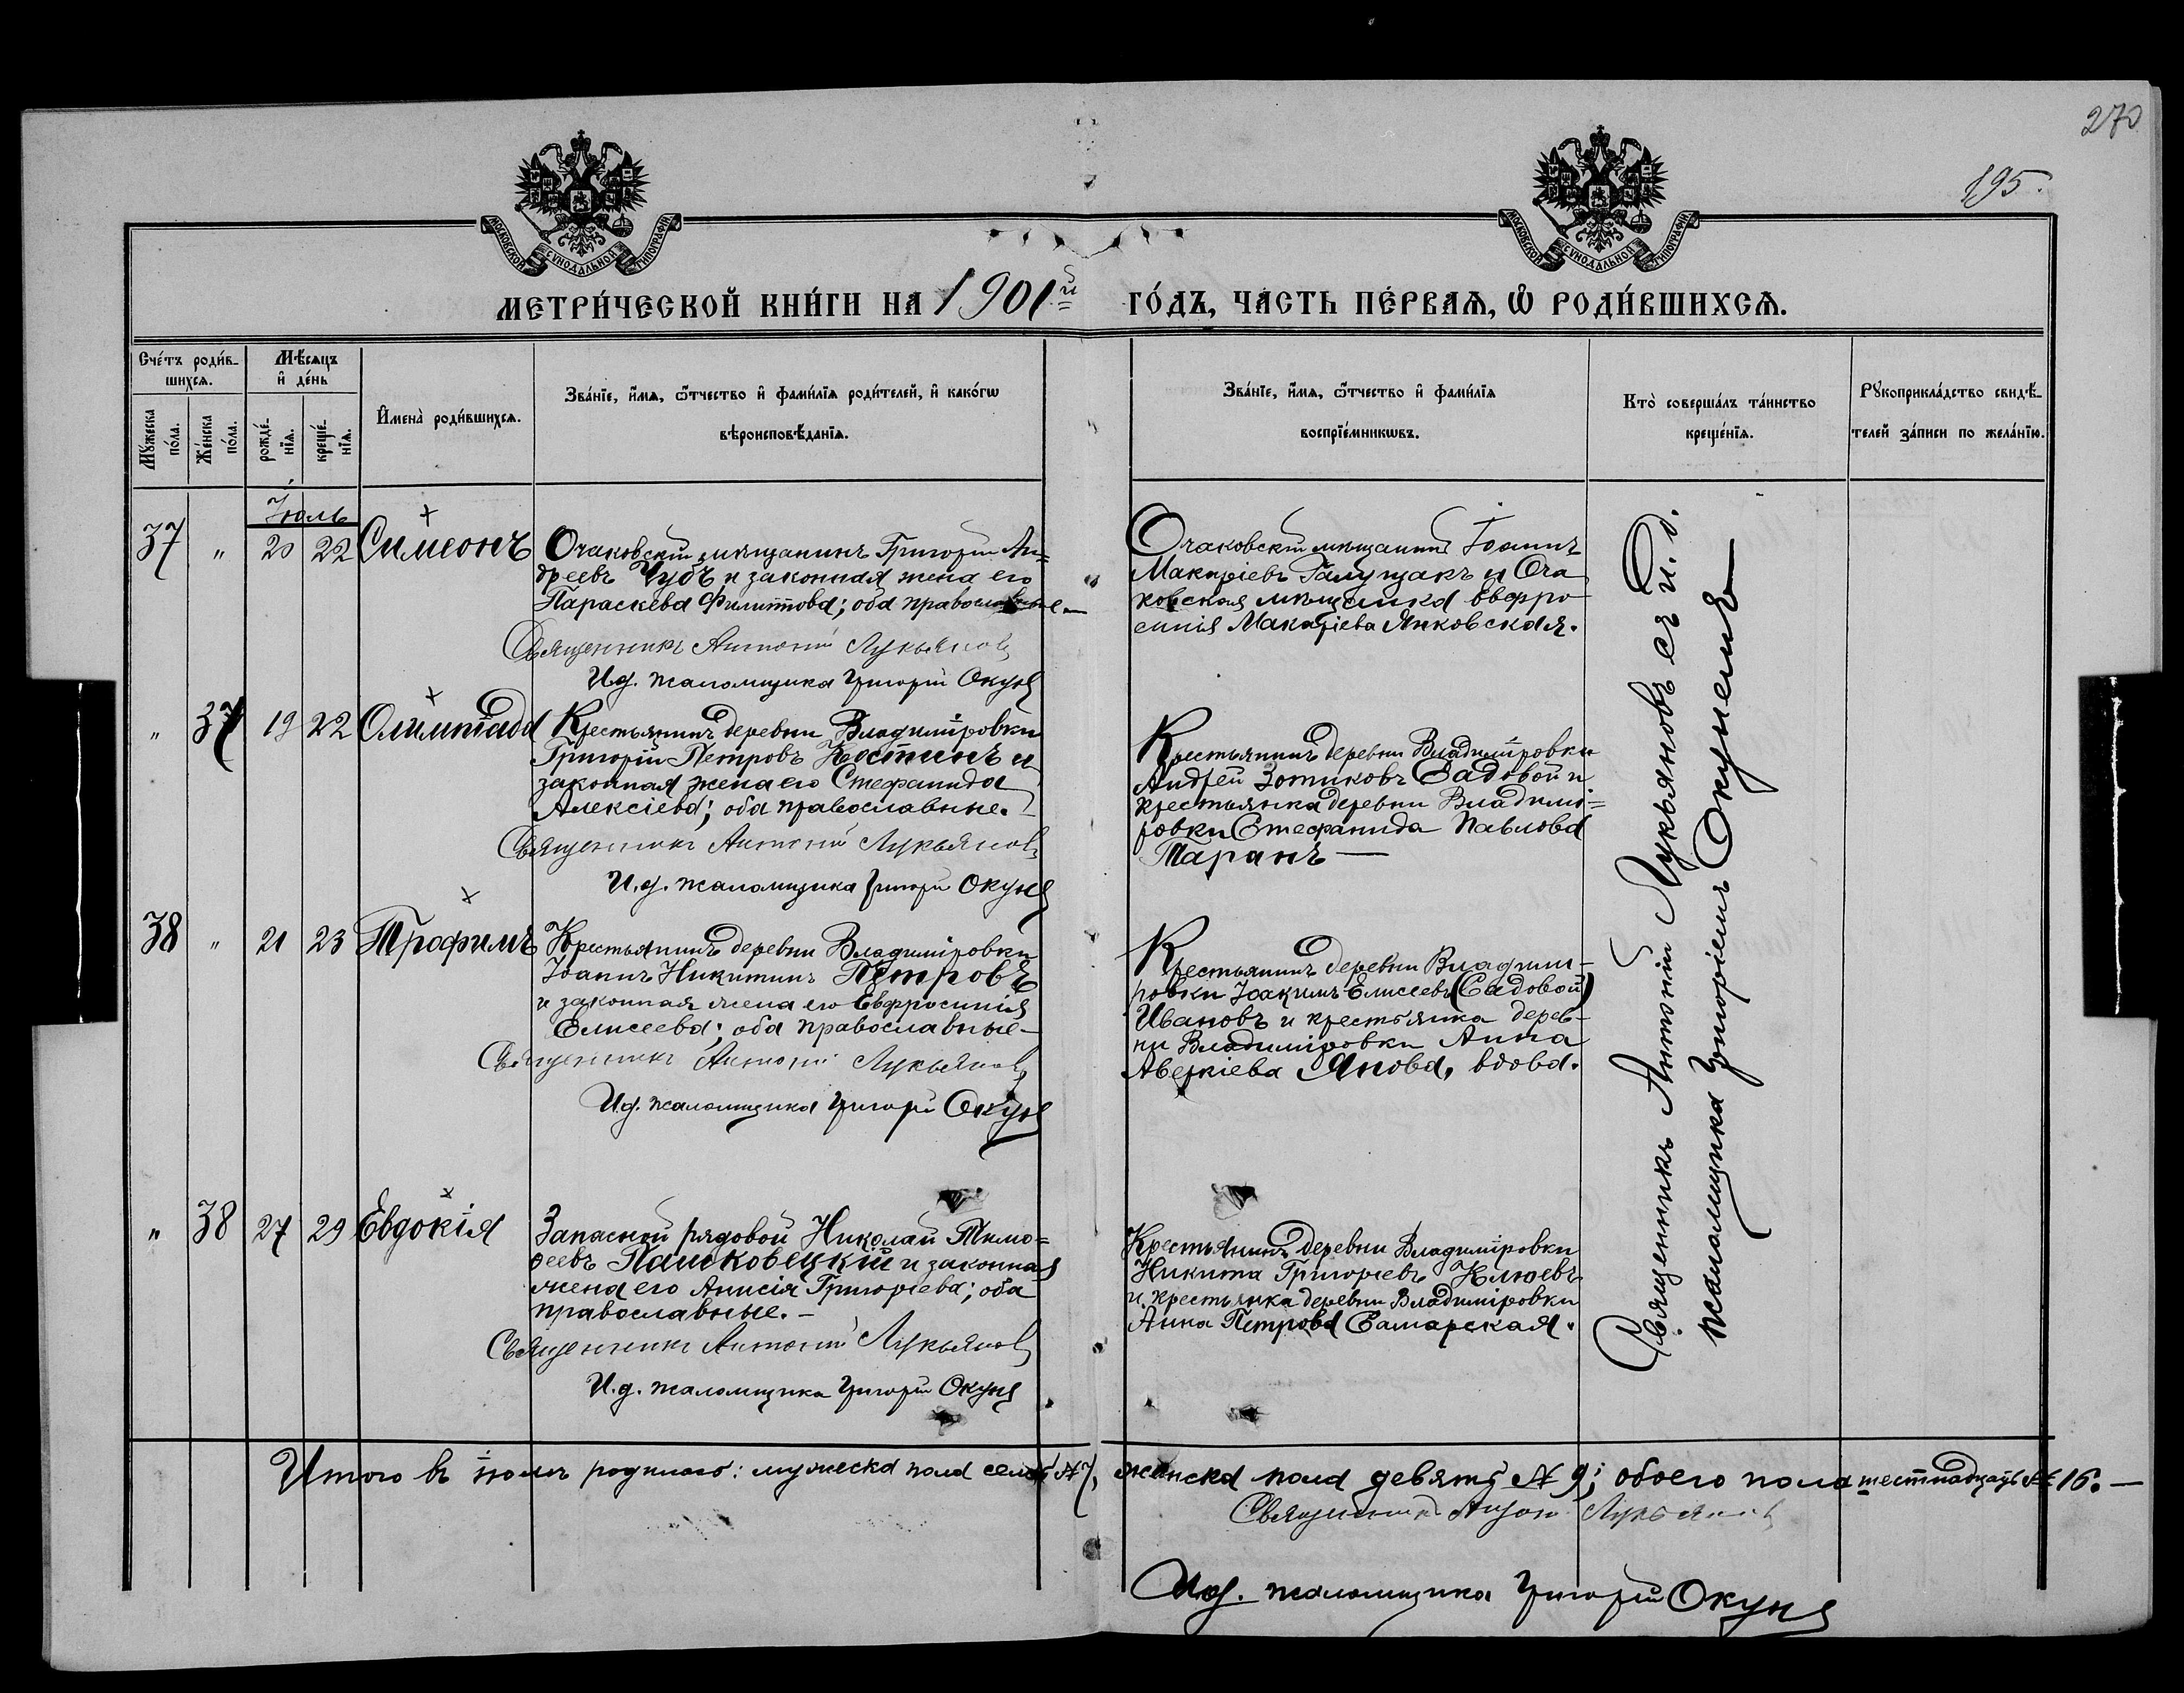 270
195.
МОСКОВСКОЙ СУНОДАЛЬНОЙ ТИПОГРАФІИ
МОСКОВСКОЙ СУНОДАЛЬНОЙ ТИПОГРАФІИ
МЕТРИ́ЧЕСКОЙ КНИ́ГИ НА 1901й ГО́ДЪ, ЧА́СТЬ ПЕ́РВАѦ, Ѡ РОДИ́ВШИХСѦ.
Сче́тъ роди́в-
шихсѧ.
Мѣ́сѧцъ
и҆ де́нь
Мꙋ́жеска по́ла.
Же́нска по́ла.
рожде́-
нїѧ.
креще́-
нїѧ.
И҆мена̀ роди́вшихсѧ.
Зва́нїе, и҆́мѧ, ѻ҆́тчество и҆ фами́лїѧ роди́телей, и҆ како́гѡ
вѣроисповѣ́данїѧ.
Зва́нїе, и҆́мѧ, ѻ҆́тчество и҆ фами́лїѧ
воспрїе́мникѡвъ.
Кто̀ соверша́лъ та́инство
креще́нїѧ.
Рꙋкоприкла́дство свидѣ́-
телей за́писи по жела́нїю.
Іюль
37 " 20 22 Симеонъ
Очаковскій мѣщанинъ Григорій Ан=
дреевъ Чубъ и законная жена его
Параскева Филиппова; оба православные.—
Священникъ Антоній Лукьяновъ
И.д. псаломщика Григорій Окунь
Очаковскій мѣщанинъ Іоаннъ
Макаріевъ Галущакъ и Оча
ковская мѣщанка Евфро
синія Макаріева Янковская.
" 37 19 22 Олимпіада
Крестьянинъ деревни Владиміровки
Григорій Петровъ Костинъ и
законная жена его Стефанида
Алексіева; оба православные.—
Священникъ Антоній Лукьяновъ
И.д. псаломщика Григорій Окунь
Крестьянинъ деревни Владиміровки
Андрей Зотиковъ Садовой и
крестьянка деревни Владимі=
ровки Стефанида Павлова
Таранъ —
38 " 21 23 Трофимъ
Крестьянинъ деревни Владиміровки
Іоаннъ Никитинъ Петровъ
и законная жена его Евфросинія
Елисеева; оба православные—
Священникъ Антоній Лукьяновъ
И.д. псаломщика Григорій Окунь
Крестьянинъ деревни Владими-
ровки Іоакимъ Елисеевъ (Садовой)
Ивановъ и крестьянка дерев-
ни Владиміровки Анна
Аверкіева Янова, вдова.
" 38 27 29 Евдокія
Запасной рядовой Николай Тимо=
феевъ Пашковецкій и законная
жена его Анисія Григоріева; оба
православные.—
Священникъ Антоній Лукьяновъ
И.д. псаломщика Григорій Окунь
Крестьянинъ деревни Владиміровки
Никита Григоріевъ Клюевъ
и крестьянка деревни Владиміровки
Анна Петрова Самарская.
Священникъ Антоній Лукьяновъ съ и.д.
псаломщика Григоріемъ Окунемъ—
Итого въ іюлѣ родилось: мужеска пола семь № 7, женска пола девять № 9; обоего пола шестнадцать № 16.—
Священникъ Антоній Лукьяновъ
И.д. псаломщика Григорій Окунь